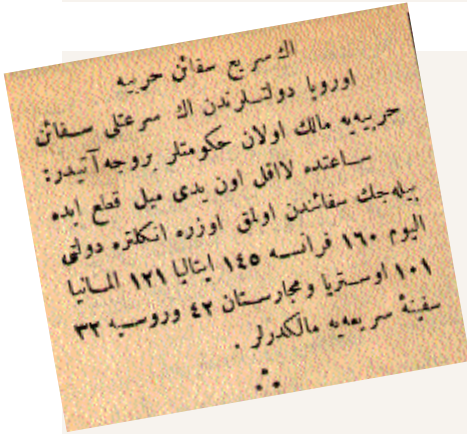 اك سريع سفائن حربيه
اوروپا دولتلرندن اك سرعتلى سفائن
حربيه‌يه مالك اولان حكومتلر بروجه آتيدر:
ساعتده لااقل اون يدى ميل قطع ايده
بيله‌جك سفائندن اولمق اوزره انكلتره دولتى
اليوم ١٦٠ فرانسه ١٤٥ ايتاليا ١٢١ المانيا
١٠١ اوستريا ومجارستان ٤٢ وروسيه ٣٢
سفينهٔ سريعه‌يه مالكدرلر .